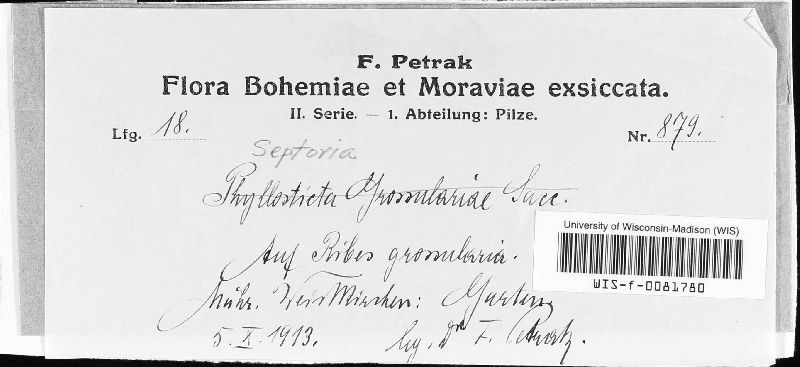 F. Petrak
Flora Bohemiae et Moraviae exsiccata.
II. Serie. — 1. Abteilung: Pilze.
Lfg. 18.
Nr. 879.
Septoria
Phyllosticta Grossulariae Sacc.
University of Wisconsin-Madison (WIS)
WIS-f-0081780
Auf Ribes grossularia.
Mähr. Weisskirchen: Garten
5. X. 1913.
leg. dr F. Petrak.